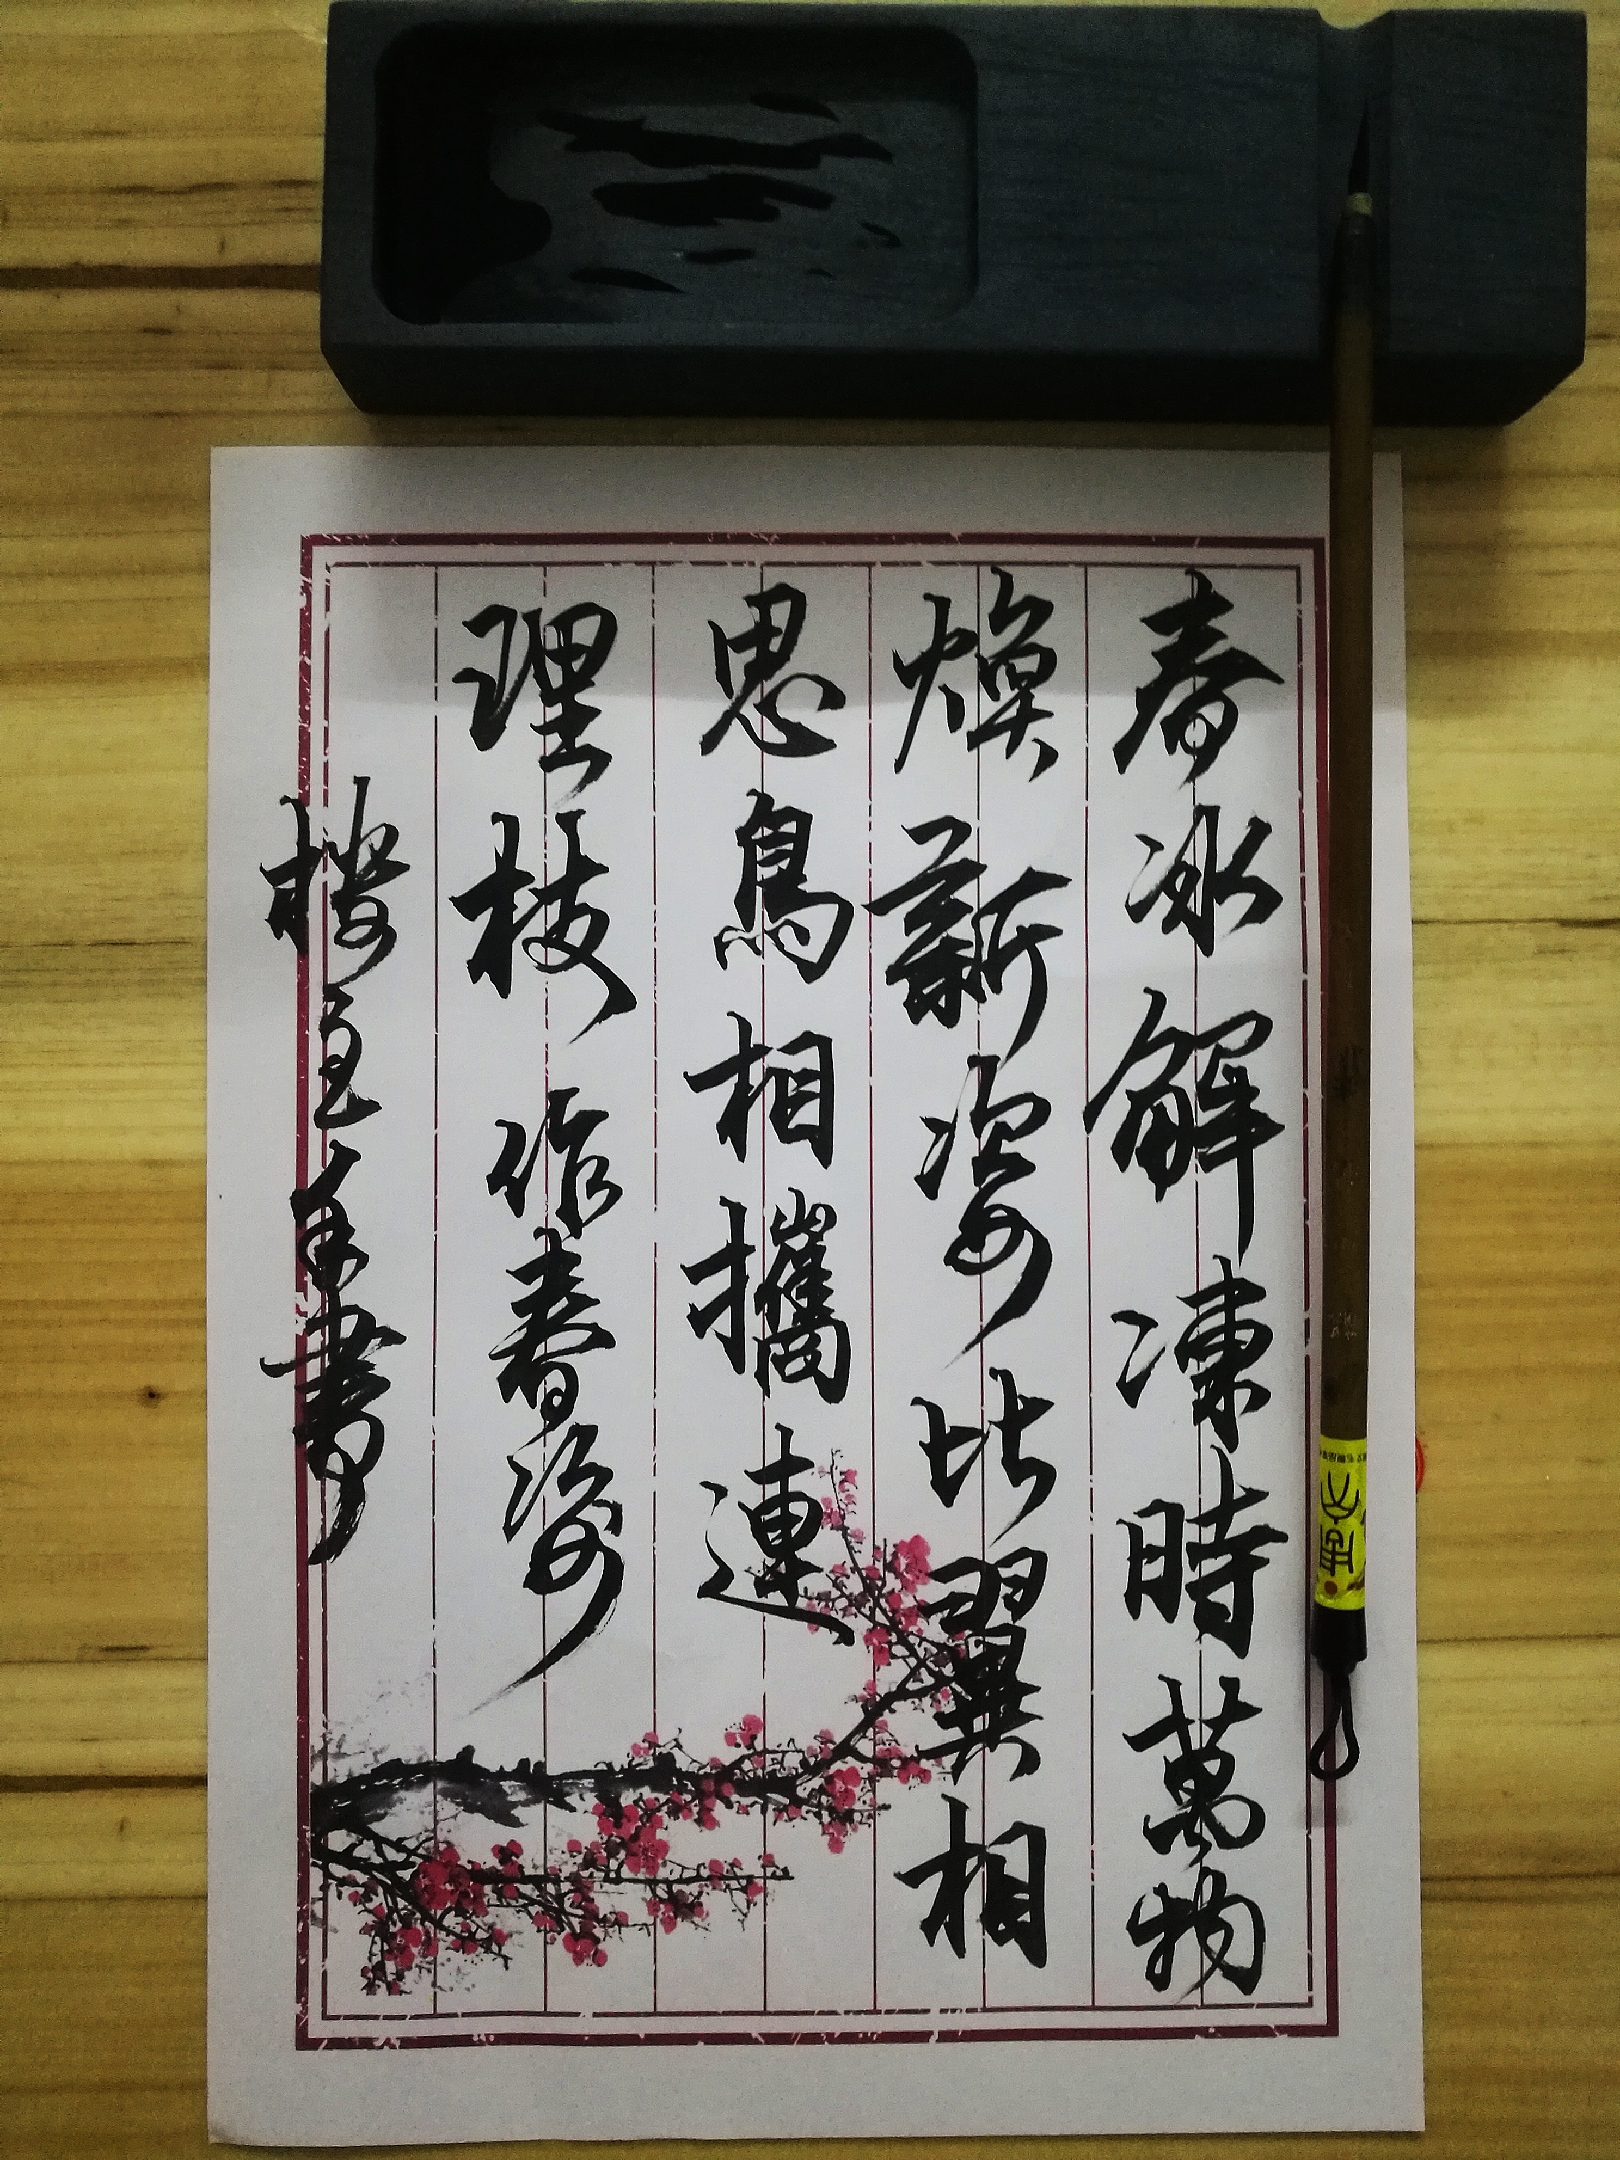 春冰解凍時萬物
煥新姿比翼相
思鳥相攜連
理枝作春姿
樓主手書